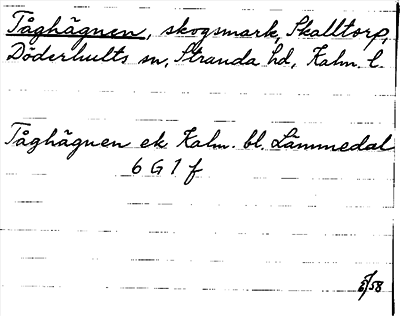 Tåghägnen, skogsmark, Skalltorp,
Döderhults sn, Stranda hd, Kalm. l.
Tåghägnen ek Kalm. bl. Lämmedal
6 G 1 f